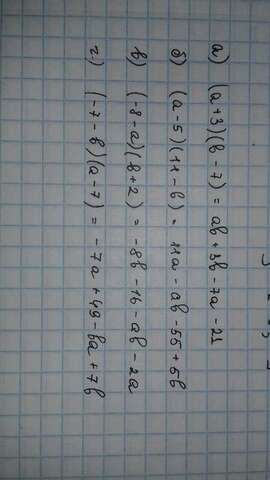 а) (a+3)(b-7) = ab+3b-7a-21
б) (a-5)(11-b) = 11a-ab-55+5b
в) (-8-a)(b+2) = -8b-16-ab-2a
г) (-7-b)(a-7) = -7a+49-ba+7b